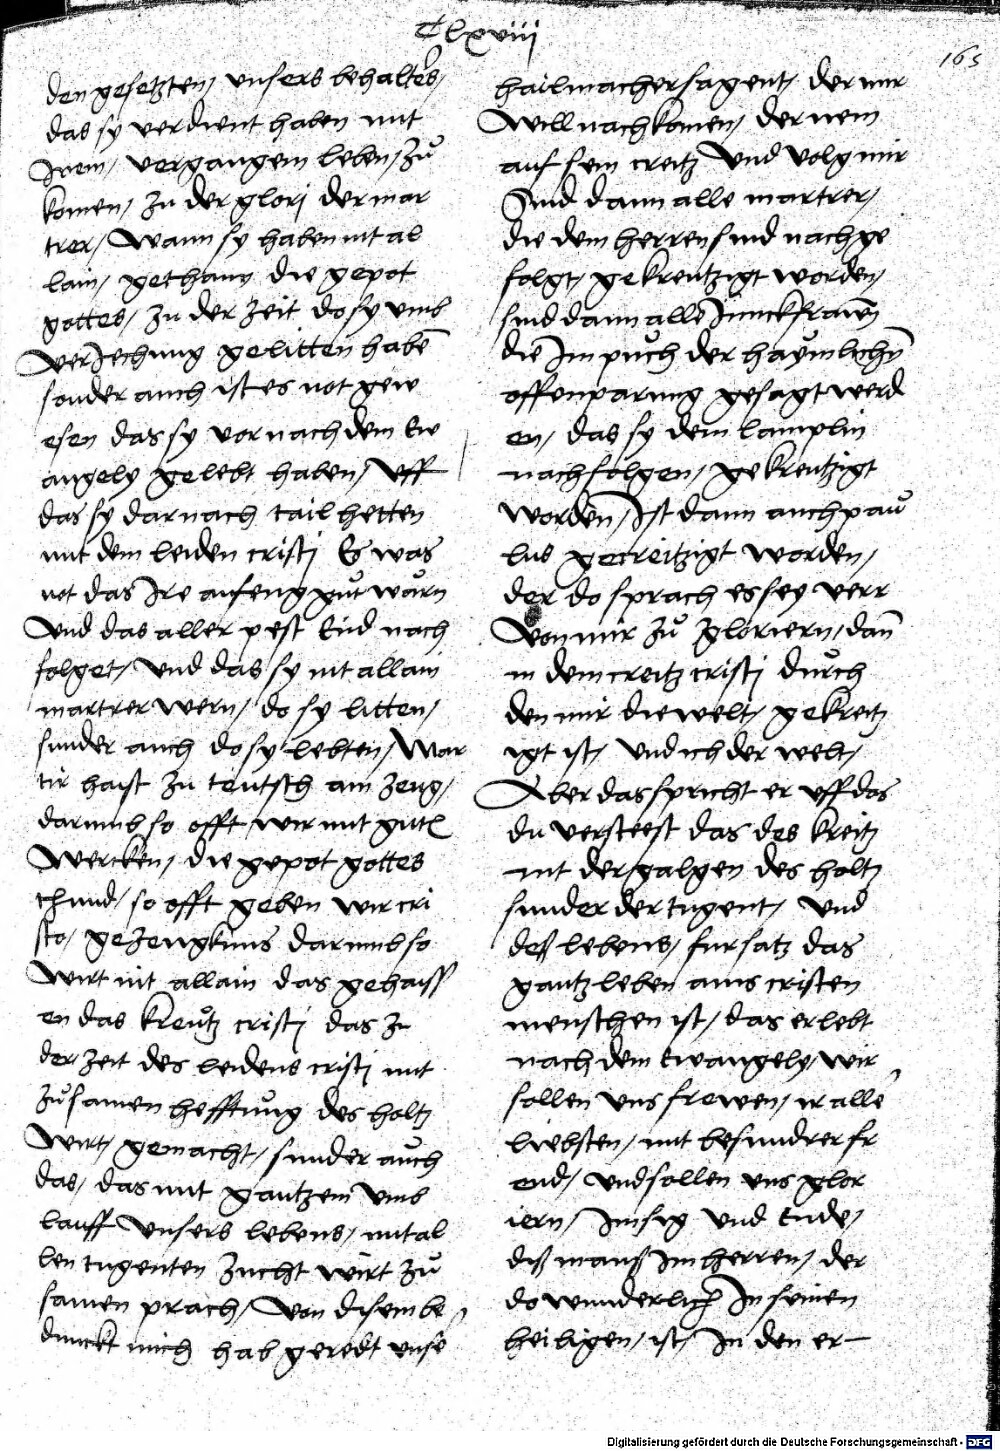 Clxviij
165
den gesetzten / vnsers behalters /
das sy verdient haben mit
Irem / vergangem leben / zů
komen / zu der glorj der mar
trer / Wann sy haben nit al
lain / gethann die gepot
gottes / zu der zeit do sy vmb
verJechung gelitten habē
sonder auch ist es not gew
esen das sy vor nach dem Ew
angely gelebt haben / vff
das sy darnach tail hetten
mit dem leiden cristj Es was
not das Ire anfeng gůt wårn
Vnd das aller pest End nach
folget / Vnd das sy nit allain
martrer wern / do sy litten /
sunder auch do sy lebten / Mar
tir haist zu teutsch ain zeug /
darumb so offt wir mit gutē
Wercken / die gepot gottes
thund / so offt geben wir cri
sto / gezeugknus darumb so
Wirt nit allain das gehaiss
en das kreutz cristj das zu
der zeit des leidens cristj mit
zůsamen hefftung des holtz
Wirt / gemacht / sunder auch
das / das mit gantzem vmb
lauff vnsers lebens / mit al
len tugenten zucht wirt zů
samen prach / Von disem be
dunckt mich hab geredt vnse
hailmacher sagent / der mir
Will nachkomen / der nem
auf sein creitz Vnd volg mir
Sind dann alle martrer /
die dem herren sind nachge
folgt / gekreutzigt worden /
sind dann alle Junckfrawē
die Im puch der haymlichn̄
offenparung gesagt werd
en / das sy dem lamplin
nachfolgen / gekreutzigt
worden / Ist dann auch paů
lus gecreitzigt worden /
der do sprach es sey verr
Von mir zů gloriern / dan̄
in dem creitz cristj durch
den mir die welt / gekreitz
igt ist / vnd ich der welt /
Aber das spricht er vff das
du versteest das des kreitz
nit der galgen des holtz
sunder der tugent / vnd
deß lebens / fursatz das
gantz leben ains cristen
menschen ist / das er lebt
nach dem Ewangely / wir
sollen vns frewen / ir alle
liebsten / mit besundrer fr
eud / vnd sollen vns glor
iern / Im sig vnd Ende /
diß manß Im herren / der
do wunderlich In seinen
heiligen / ist / In den er—
Digitalisierung gefördert durch die Deutsche Forschungsgemeinschaft - DFG